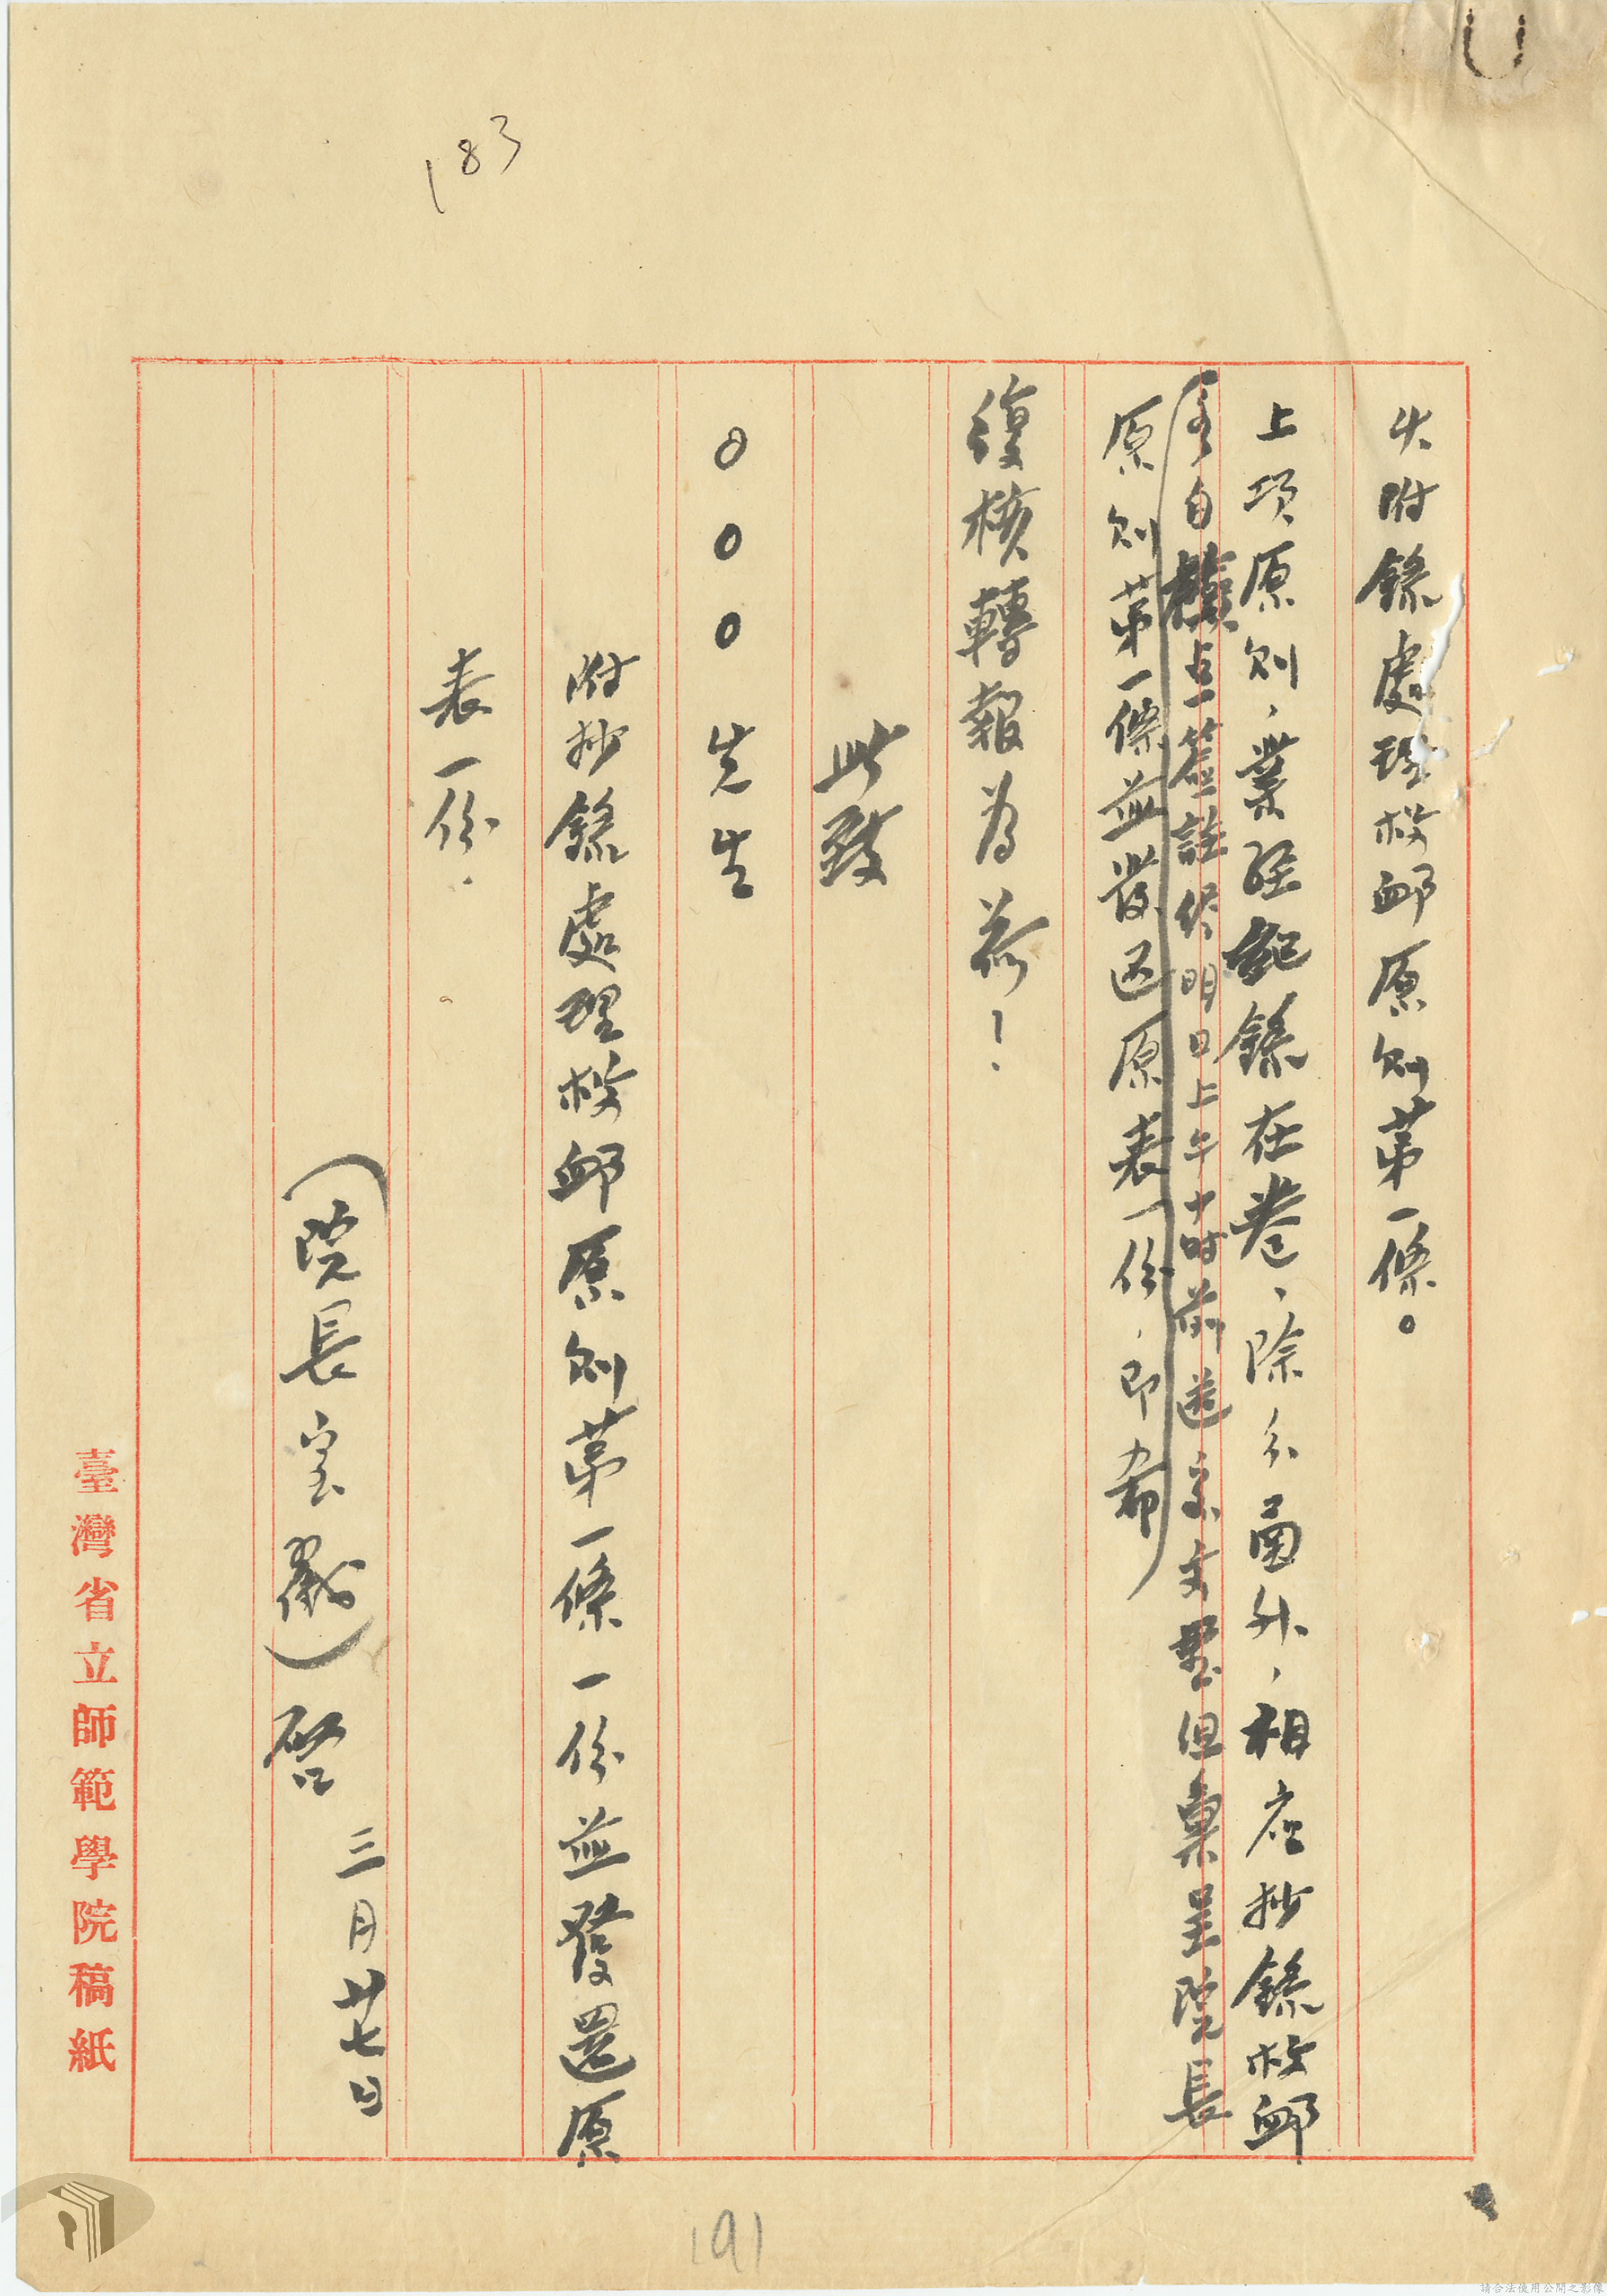 183
附錄處理救邮原則第一條。
上項原則，業經記錄在卷，除分函外，相应抄錄救邮
自填点簽註，明日上午十时前送交文書组彙呈院長
原則第一條並發还原表一份，即希
復核轉報為荷！
此致
○○○先生
附抄錄處理救邮原則第一條一份並發還原
表一份．
（院長室戳）啓
三月廿七日
臺灣省立師範學院稿紙
191
請合法使用公開之影像